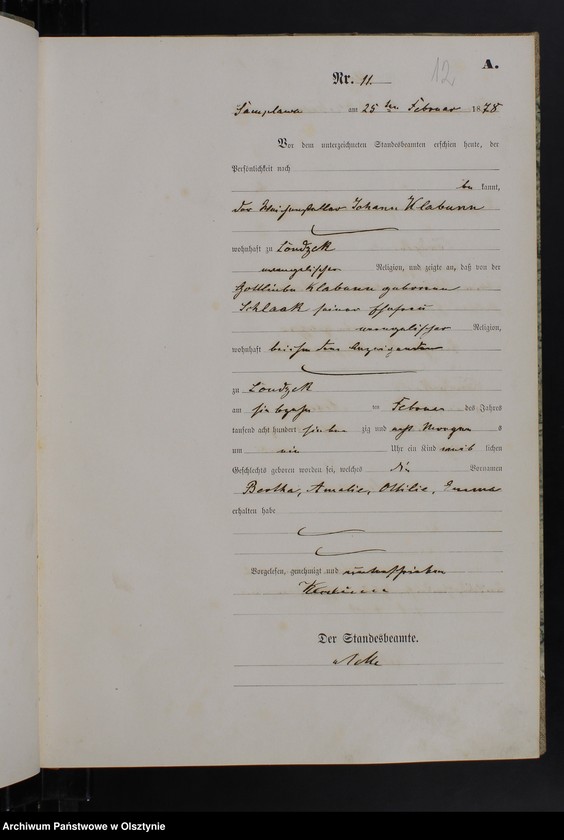 12
A.
Nr. 11.
Samplawa am 25 ten Februar 1878
Vor dem unterzeichneten Standesbeamten erschien heute, der
Persönlichkeit nach
be kannt,
der Johann Klabunn
wohnhaft zu Londzek
evangelischer Religion, und zeigte an, daß von der
Gottliebe Klabunn geborenen
Schlaak seiner Ehefrau
evangelischer Religion,
wohnhaft bei ihm dem Anzeigenden
zu Londzek
am siebzehn ten Februar des Jahres
tausend acht hundert sieben zig und acht Morgen s
um ein Uhr ein Kind weib lichen
Geschlechts geboren worden sei, welches die Vornamen
Bertha, Amalie, Ottilie, Emma
erhalten habe
Vorgelesen, genehmigt und unterschrieben
Der Standesbeamte.
Archiwum Państwowe w Olsztynie